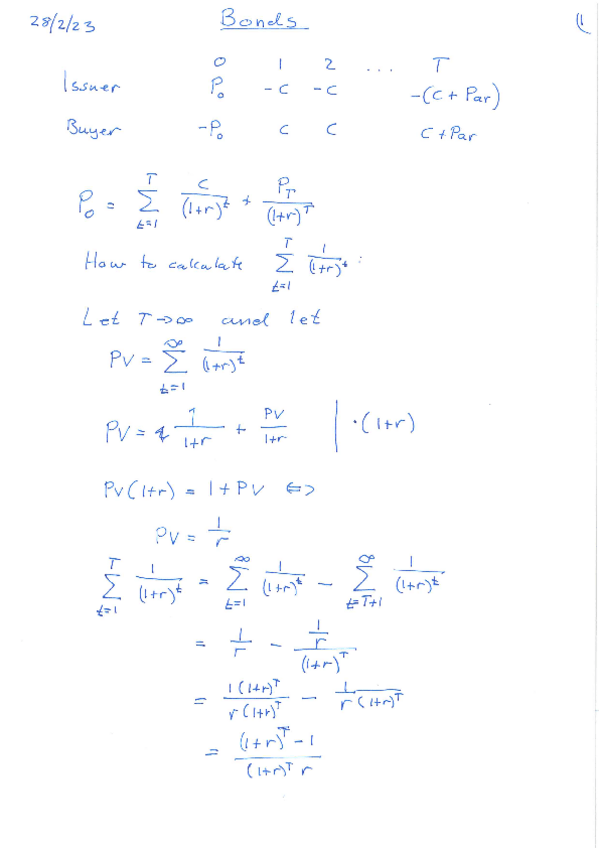 28/2/23 Bonds (1
0 1 2 ... T
Issuer P₀ -C -C -(C + Par)
Buyer -P₀ C C C + Par
P₀ = ∑_{t=1}^{T} C/(1+r)^t + P_T/(1+r)^T
How to calculate ∑_{t=1}^{T} 1/(1+r)^t :
Let T→∞ and let
PV = ∑_{t=1}^{∞} 1/(1+r)^t
PV = 1/(1+r) + PV/(1+r) | ·(1+r)
PV(1+r) = 1 + PV ⇔
PV = 1/r
∑_{t=1}^{T} 1/(1+r)^t = ∑_{t=1}^{∞} 1/(1+r)^t - ∑_{t=T+1}^{∞} 1/(1+r)^t
= 1/r - (1/r)/(1+r)^T
= 1(1+r)^T/(r(1+r)^T) - 1/(r(1+r)^T)
= ((1+r)^T - 1)/((1+r)^T r)